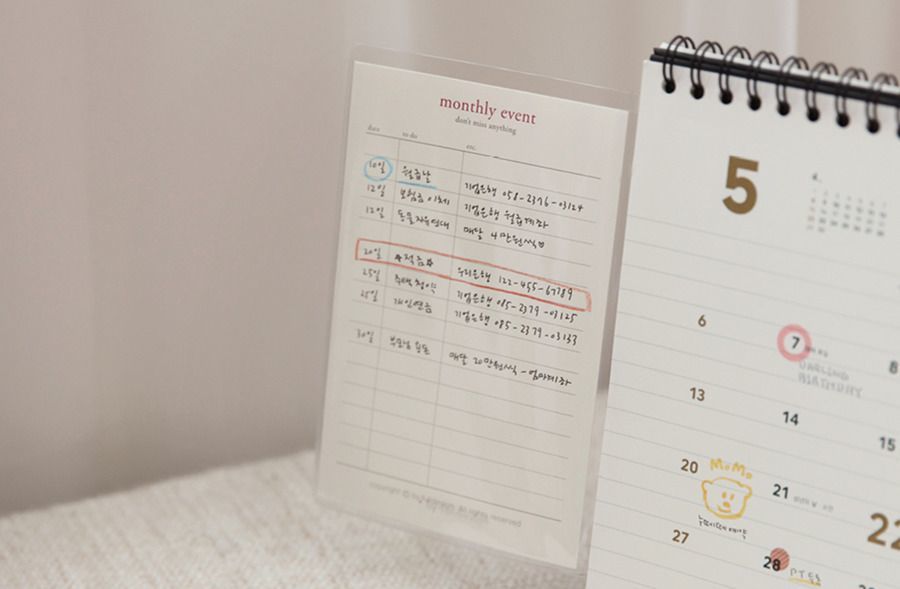 monthly event
don't miss anything
date to do etc.
10일 월급날 기업은행 058-2376-03124
12일 보험금 이체 기업은행 월급계좌
12일 동물자유연대 매달 4만원씩♡
20일 ★적금★ 우리은행 122-455-67789
25일 주택청약 기업은행 085-2379-03125
25일 개인연금 기업은행 085-2379-03133
30일 부모님 용돈 매달 20만원씩 - 엄마계좌
copyright ⓒ All rights reserved
5
6 7 8
DARLING
BIRTHDAY
13 14 15
20 MoMo 21 22
예약
27 28
PT